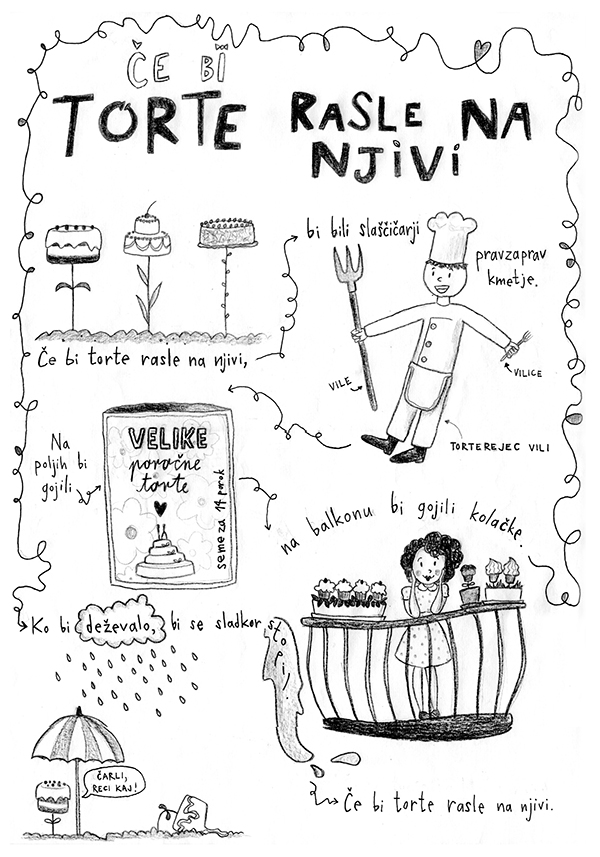 ČE BI
TORTE RASLE NA
NJIVI
Če bi torte rasle na njivi,
bi bili slaščičarji
pravzaprav
kmetje.
VILE
VILICE
TORTEREJEC VILI
Na
poljih bi
gojili
VELIKE
poročne
torte
seme za 14 porok
na balkonu bi gojili kolačke.
Ko bi deževalo, bi se sladkor stopil.
ČARLI,
RECI KAJ!
Če bi torte rasle na njivi.